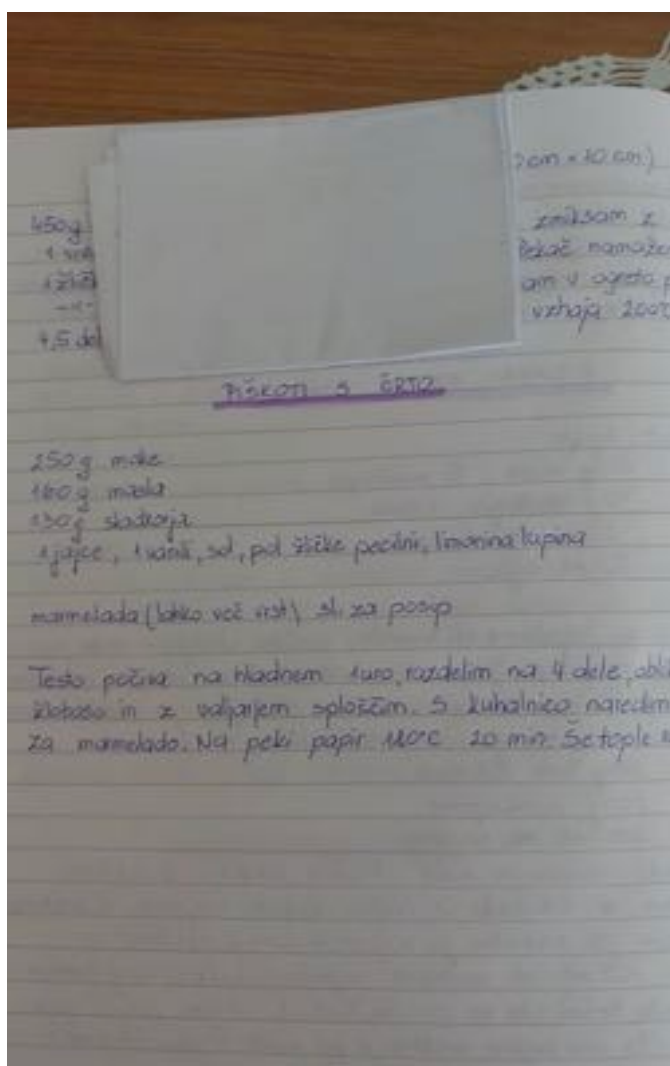 2cm × 10 cm)
450g zmiksam z
1 Pekač namaže
1 am v ogreto p
vzhaja 200°C
4,5 del
PIŠKOTI S ČRTO
250 g moke
160 g masla
130 g sladkorja
1 jajce, 1 vanili, sol, pol žličke pecilni, limonina lupina
marmelada (lahko več vrst) sl. za posip
Testo počiva na hladnem 1 uro, razdelim na 4 dele, obli
klobaso in z valjanjem sploščim. S kuhalnico naredim
za marmelado. Na peki papir 180°C 20 min. Še tople